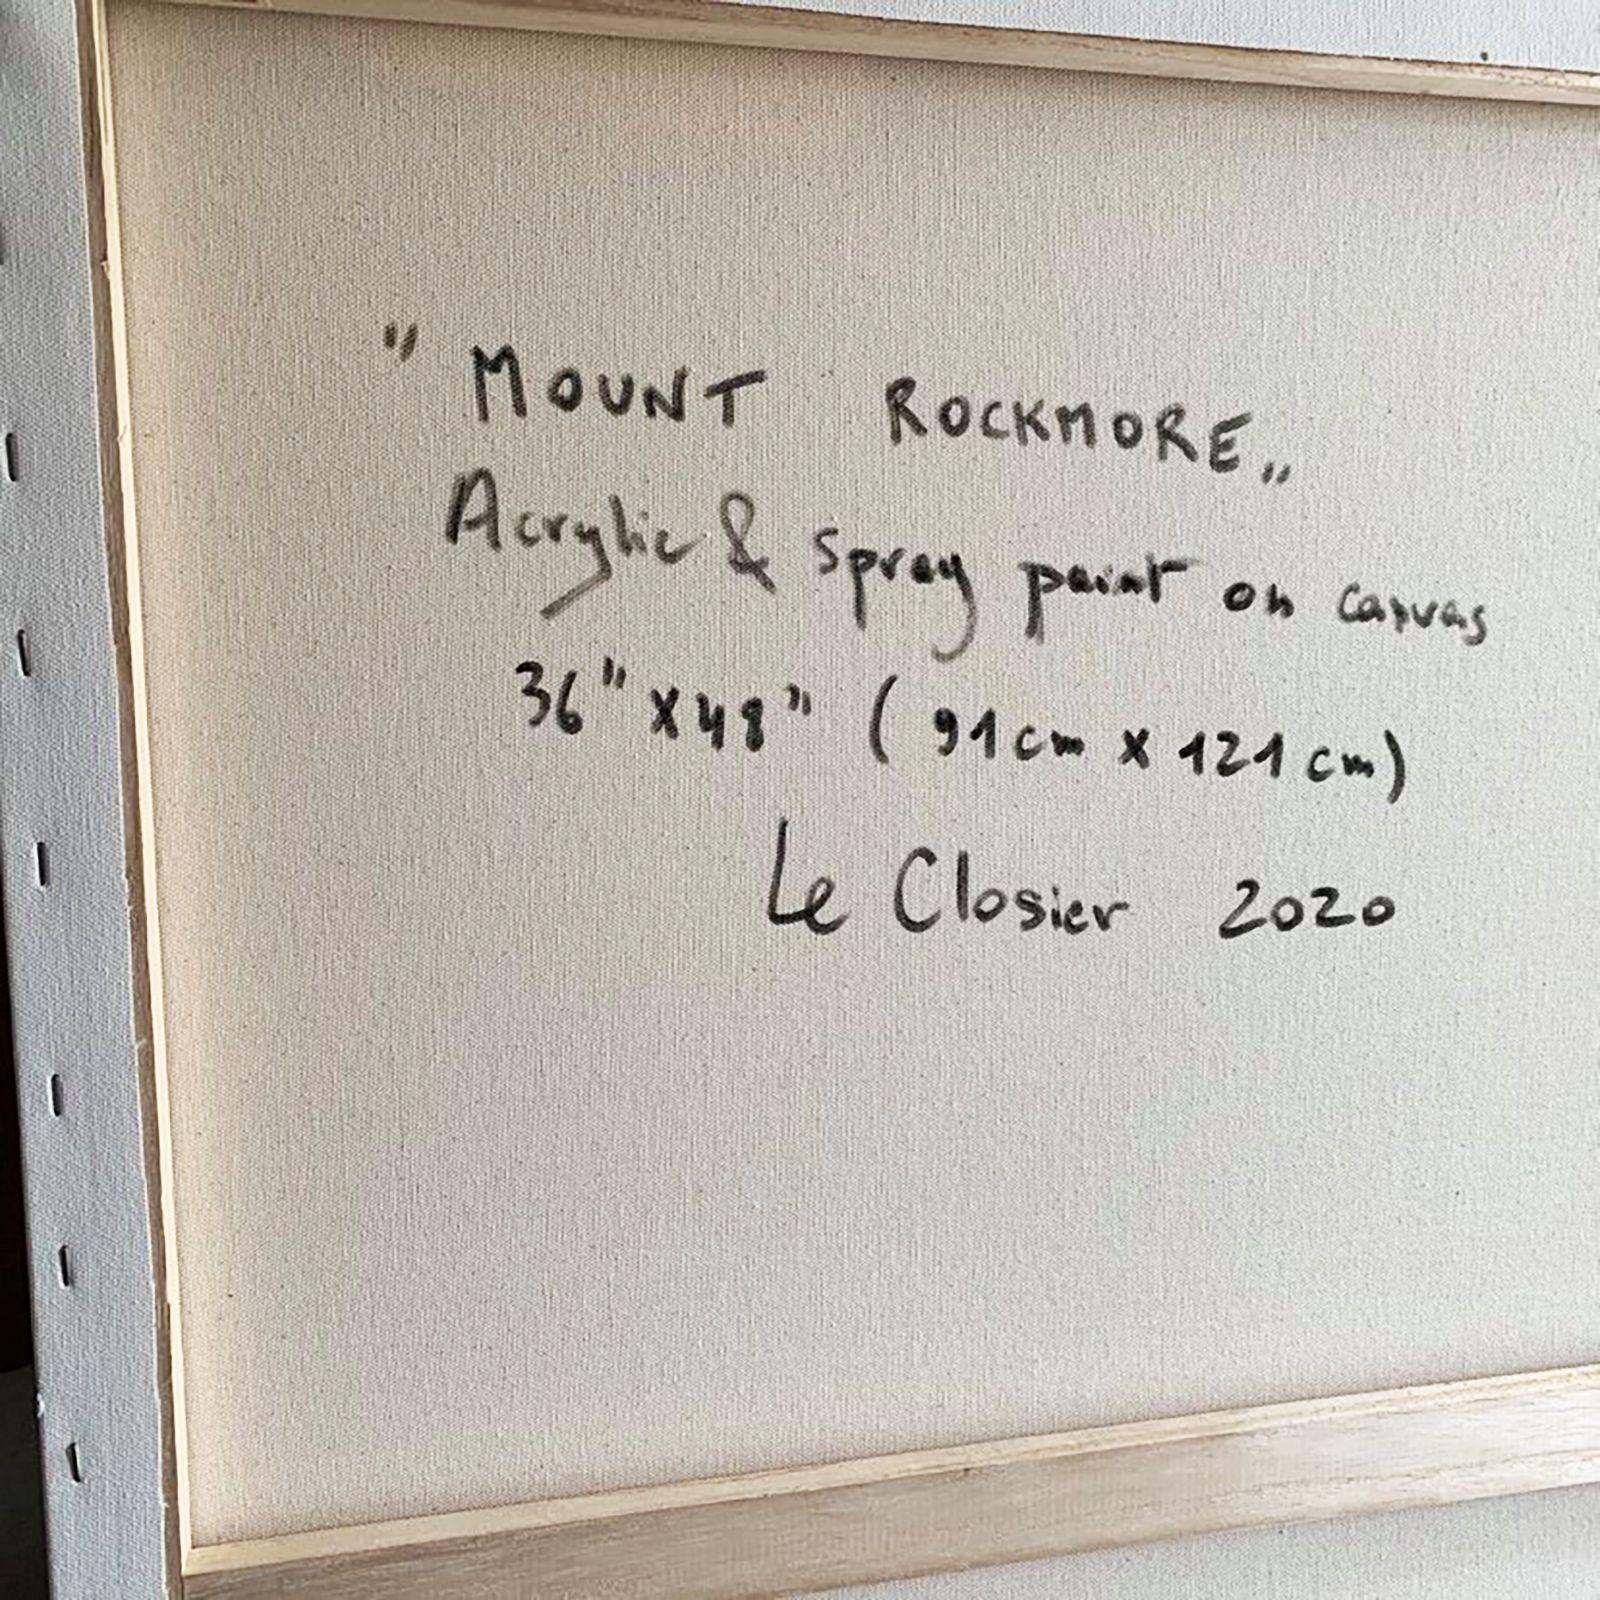 " MOUNT ROCKMORE „
Acrylic & spray paint on canvas
36" x 48" ( 91 cm x 121 cm)
Le Closier 2020